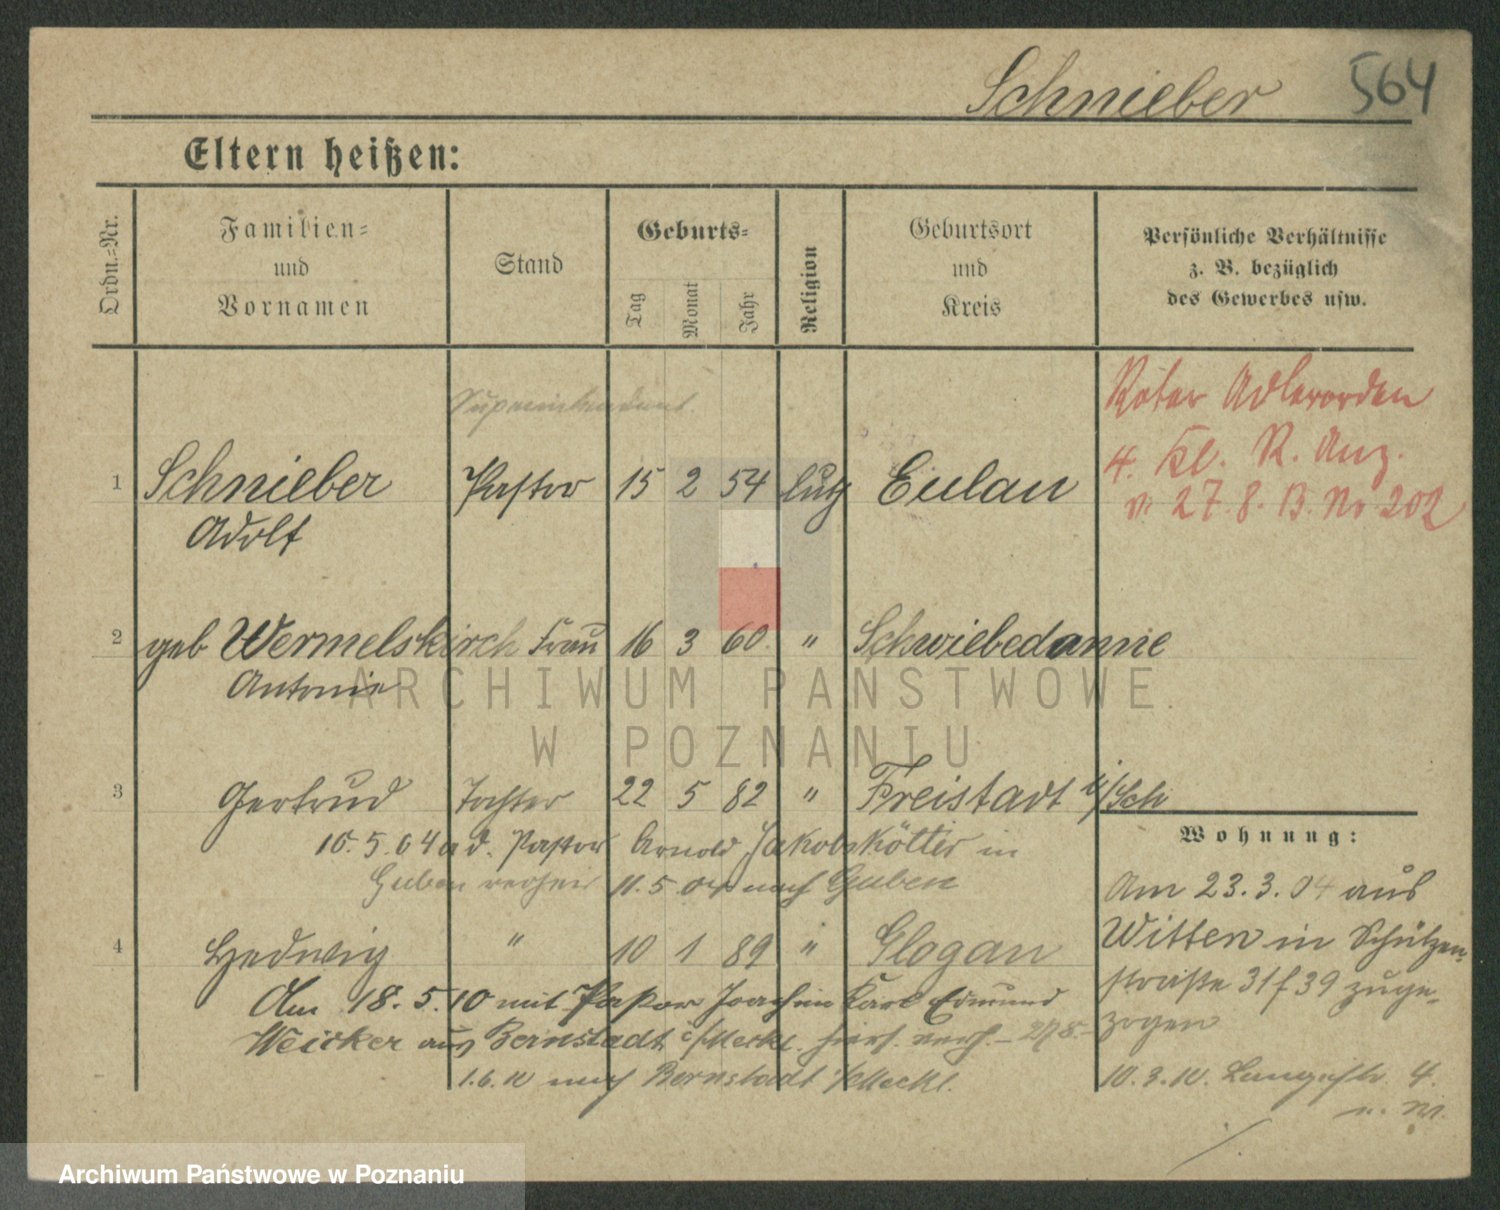 Schnieber 564
Eltern heißen:
Ordn.-Nr. Familien- und Vornamen Stand Geburts- Tag Monat Jahr Religion Geburtsort und Kreis Persönliche Verhältnisse z. B. bezüglich des Gewerbes usw.
Superintendent
Roter Adlerorden
4. Kl. R. Anz.
v. 27.8. B. Nr 202
1 Schnieber Pastor 15 2 54 Eulau
Adolf
2 geb Wermelskirch Frau 16 3 60 "
Antonie
3 Gertrud Tochter 22 5 82 " Freistadt i/Sch
10.5.04 a d. Pastor Arnold Jakobskötter in
Guben verheir 11.5.04 nach Guben
4 Hedwig " 10 1 89 " Glogau
Am 18.5.10 mit Pastor Joachim Karl Edmund
Weicker aus Bernstadt i/Meckl. hier
1.6.10 nach Bernstadt i/Meckl.
Wohnung:
Am 23.3.04 aus
Witten in Schützen-
straße 31 f 39 zuge-
zogen
10.3.10. Langestr. 4.
ARCHIWUM PAŃSTWOWE
W POZNANIU
Archiwum Państwowe w Poznaniu